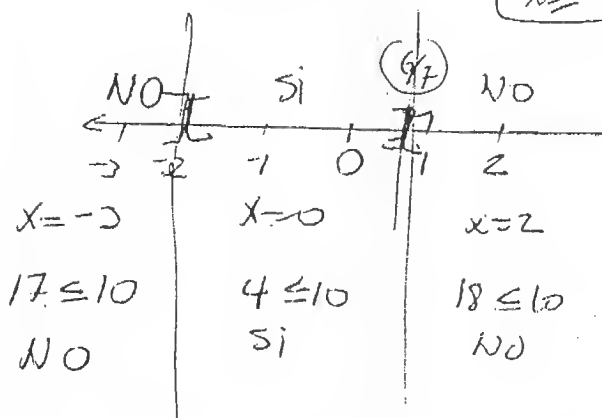 NO Si 6/7 NO
-3 -2 -1 0 1 2
x=-3 x=0 x=2
17≤10 4≤10 18≤10
NO Si NO